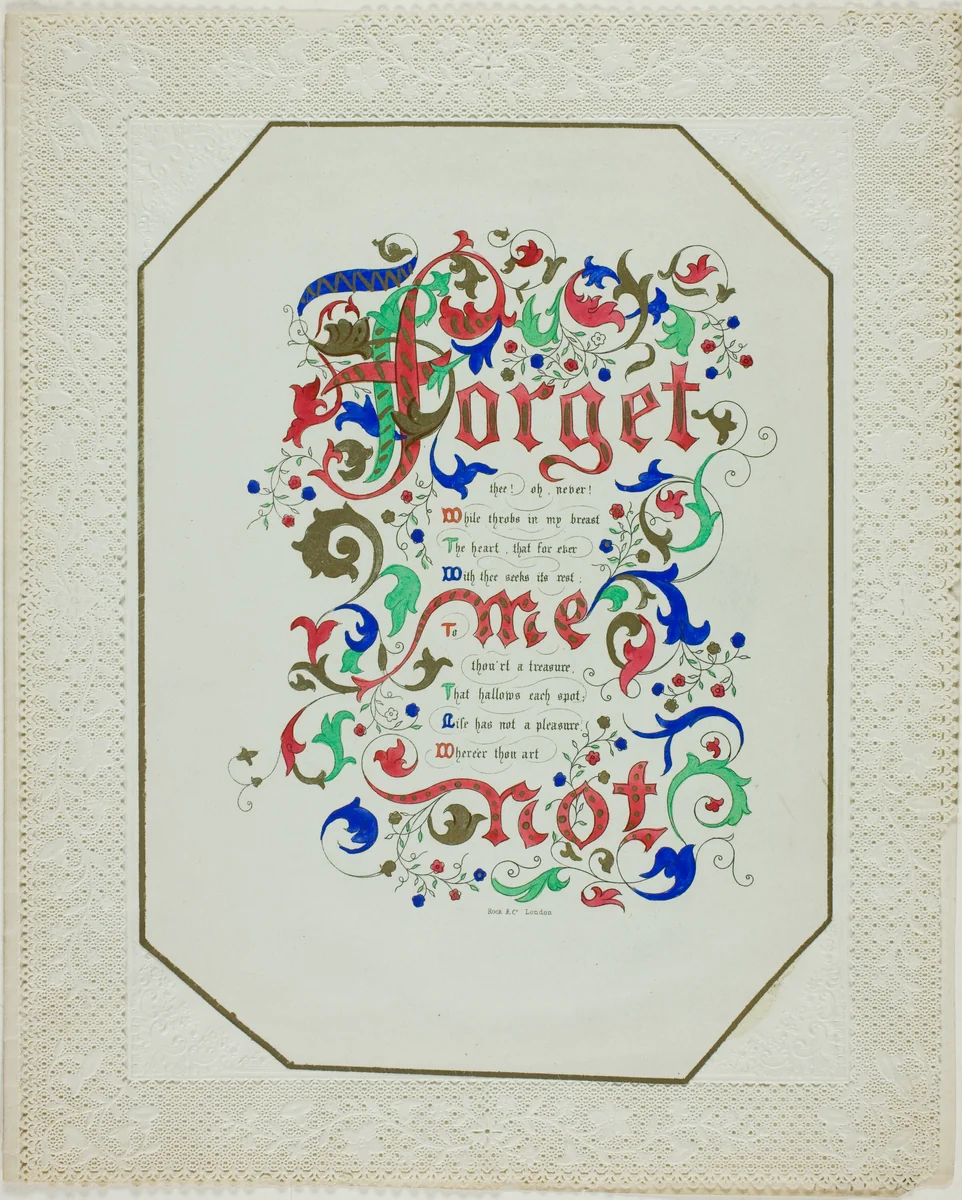 Forget
thee! oh, never!
While throbs in my breast
The heart, that for ever
With thee seeks its rest;
me
To
thou'rt a treasure,
That hallows each spot;
Life has not a pleasure
Where'er thou art
not.
Rock & Co London